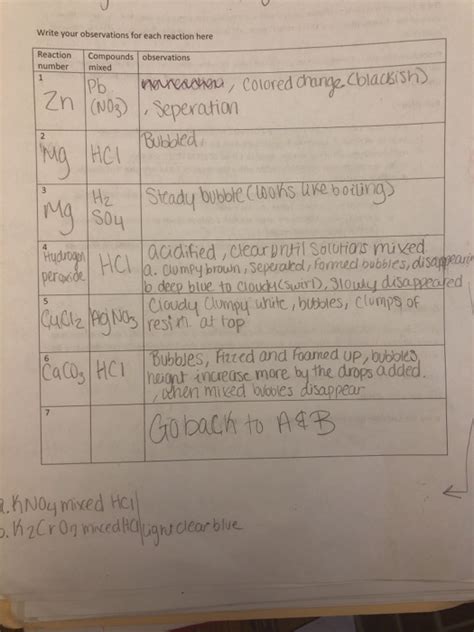 Write your observations for each reaction here
Reaction number Compounds mixed observations
1 Zn Pb (NO3) , Colored change (blackish)
, Seperation
2 Mg HCl Bubbled
3 Mg H2 SO4 Steady bubble (looks like boiling)
4 Hydrogen peroxide HCl acidified, clear until solutions mixed
a. clumpy brown, seperated, formed bubbles, disappearing
b deep blue to cloudy (swirl), slowly disappeared
5 CuCl2 AgNO3 Cloudy Clumpy white, bubbles, clumps of
resim at top
6 CaCO3 HCl Bubbles, Fizzed and foamed up, bubbles,
height increase more by the drops added.
, when mixed bubbles disappear
7 Go back to A&B
a. KNO4 mixed HCl
b. K2CrO7 mixed HCl light clear blue